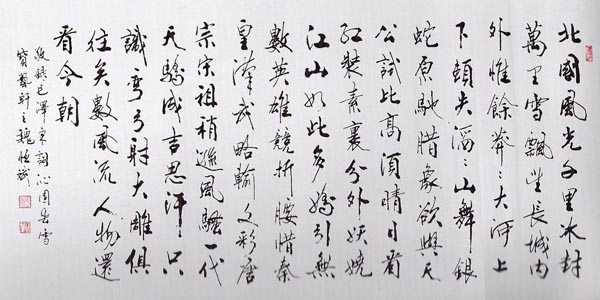 北國風光千里冰封
萬里雪飄望長城內
外惟餘莽〻大河上
下頓失滔〻山舞銀
蛇原馳腊象欲與天
公試比高須晴日看
紅裝素裹分外妖嬈
江山如此多嬌引無
數英雄競折腰惜秦
皇漢武略輸文彩唐
宗宋祖稍遜風騷一代
天驕成吉思汗只
識彎弓射大雕俱
往矣數風流人物還
看今朝
敬錄毛澤東詞沁園春雪
寶藝軒主魏